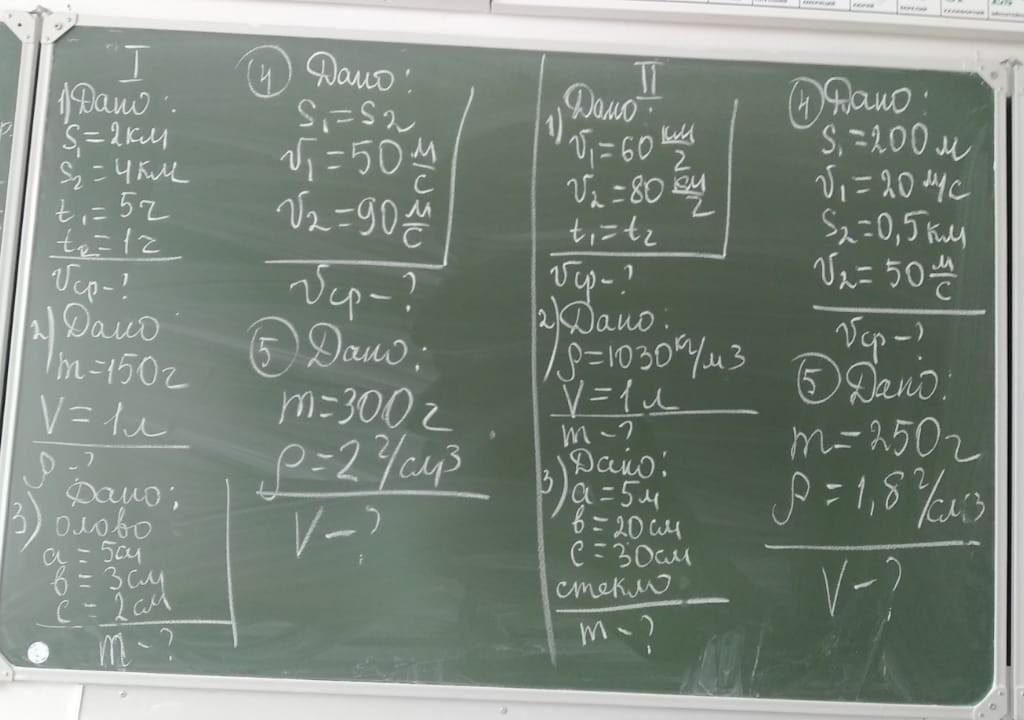 I
1) Дано:
S₁ = 2км
S₂ = 4км
t₁ = 5г
t₂ = 1г
Vср - ?
2) Дано
m = 150г
V = 1л
ρ - ?
3) Дано:
олово
a = 5см
в = 3см
c = 2см
m - ?
④ Дано:
S₁ = S₂
V₁ = 50 м/с
V₂ = 90 м/с
Vср - ?
⑤ Дано:
m = 300г
ρ = 2 г/см3
V - ?
II
1) Дано:
V₁ = 60 км/г
V₂ = 80 км/г
t₁ = t₂
Vср - ?
2) Дано:
ρ = 1030 кг/м3
V = 1л
m - ?
3) Дано:
a = 5м
в = 20см
c = 30см
стекло
m - ?
④ Дано:
S₁ = 200м
V₁ = 20 м/с
S₂ = 0,5км
V₂ = 50 м/с
Vср - ?
⑤ Дано:
m = 250г
ρ = 1,8 г/см3
V - ?